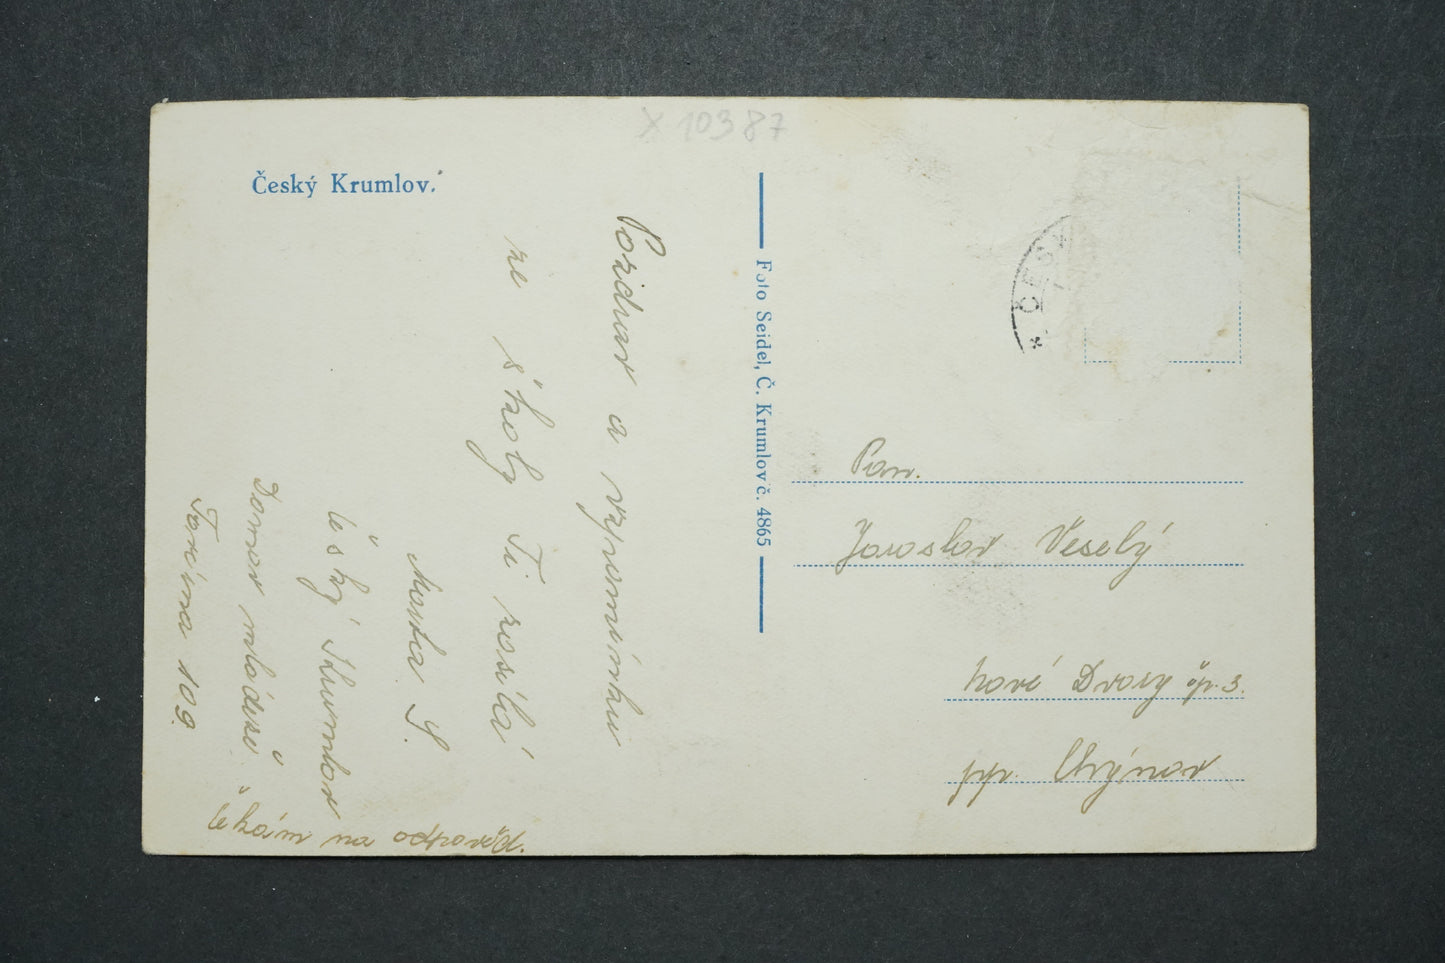 X 10387
Český Krumlov.
Pozdrav a vzpomínku
ze školy Ti posílá
Marta S.
Český Krumlov
Domov mládeže
109.
Čekám na odpověd.
Foto Seidel, Č. Krumlov č. 4865
Pan.
Jaroslav Veselý
Nové Dvory čp. 3.
pp. Chýnov
* ČESK